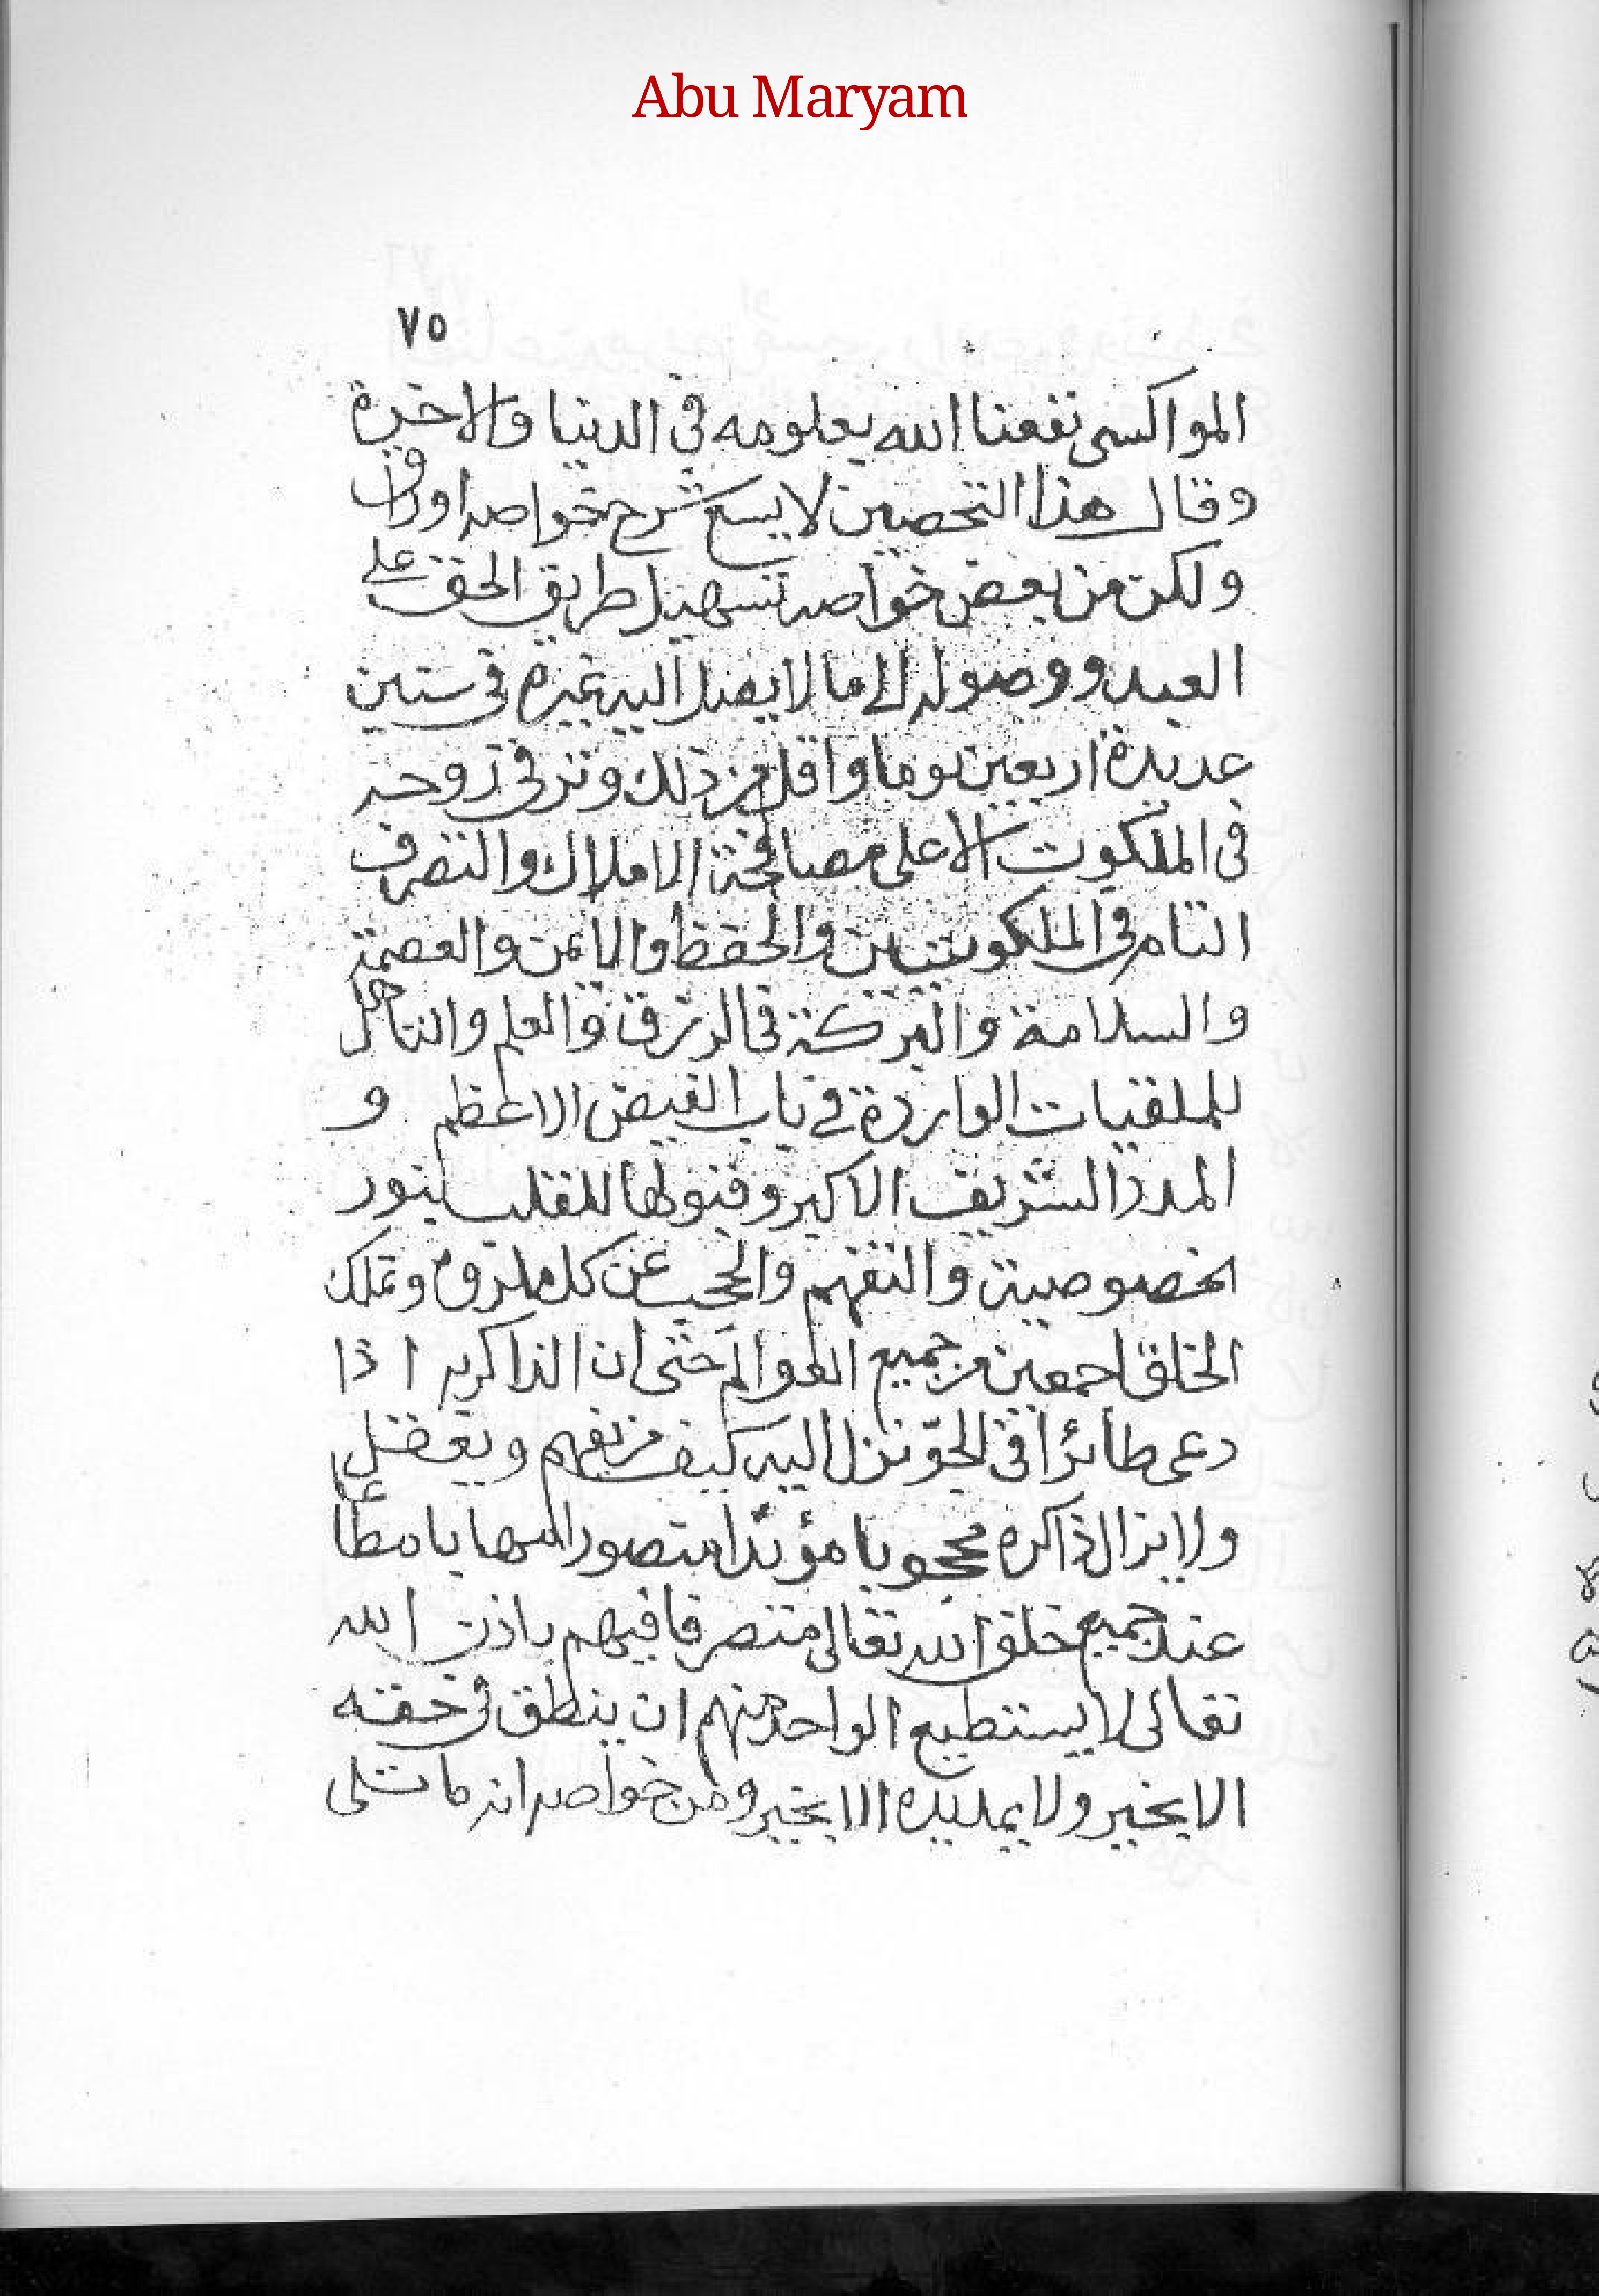 Abu Maryam
٧٥
المواكسى نفعنا الله بعلومه فى الدنيا والاخرة
وقال هذا التحصين لا يسع شرح خواصه اوراق
ولكن من بعض خواصه تسهيل طريق الحق على
العبد ووصوله الى ما لا يصل اليه غيره فى سنين
عديدة اربعين يوما واقل من ذلك وترقى روحه
فى الملكوت الاعلى مصافحة الاملاك والتصرف
التام فى الملكوتيين والحفظ والامن والعصمة
والسلامة والبركة فى الرزق والعلم والتاهل
للملقيات الواردة فى باب الفيض الاعظم و
المدد الشريف الاكبر وقبولها للقلب بنور
الخصوصية والتفهم والحجب عن كل ملزوم وتملك
الخلق اجمعين من جميع العوالم حتى ان الذاكر به اذا
دعى طائرا فى الجوّ نزل اليه كيف من يفهم ويعقل
ولا يزال ذاكره محجوبا مؤيدا منصورا مهابا مطاعا
عند جميع خلق الله تعالى متصرفا فيهم باذن الله
تعالى لا يستطيع الواحد منهم ان ينطق فى حقه
الا بخير ولا يمد يده الا بخير ومن خواصه انه ما تلى